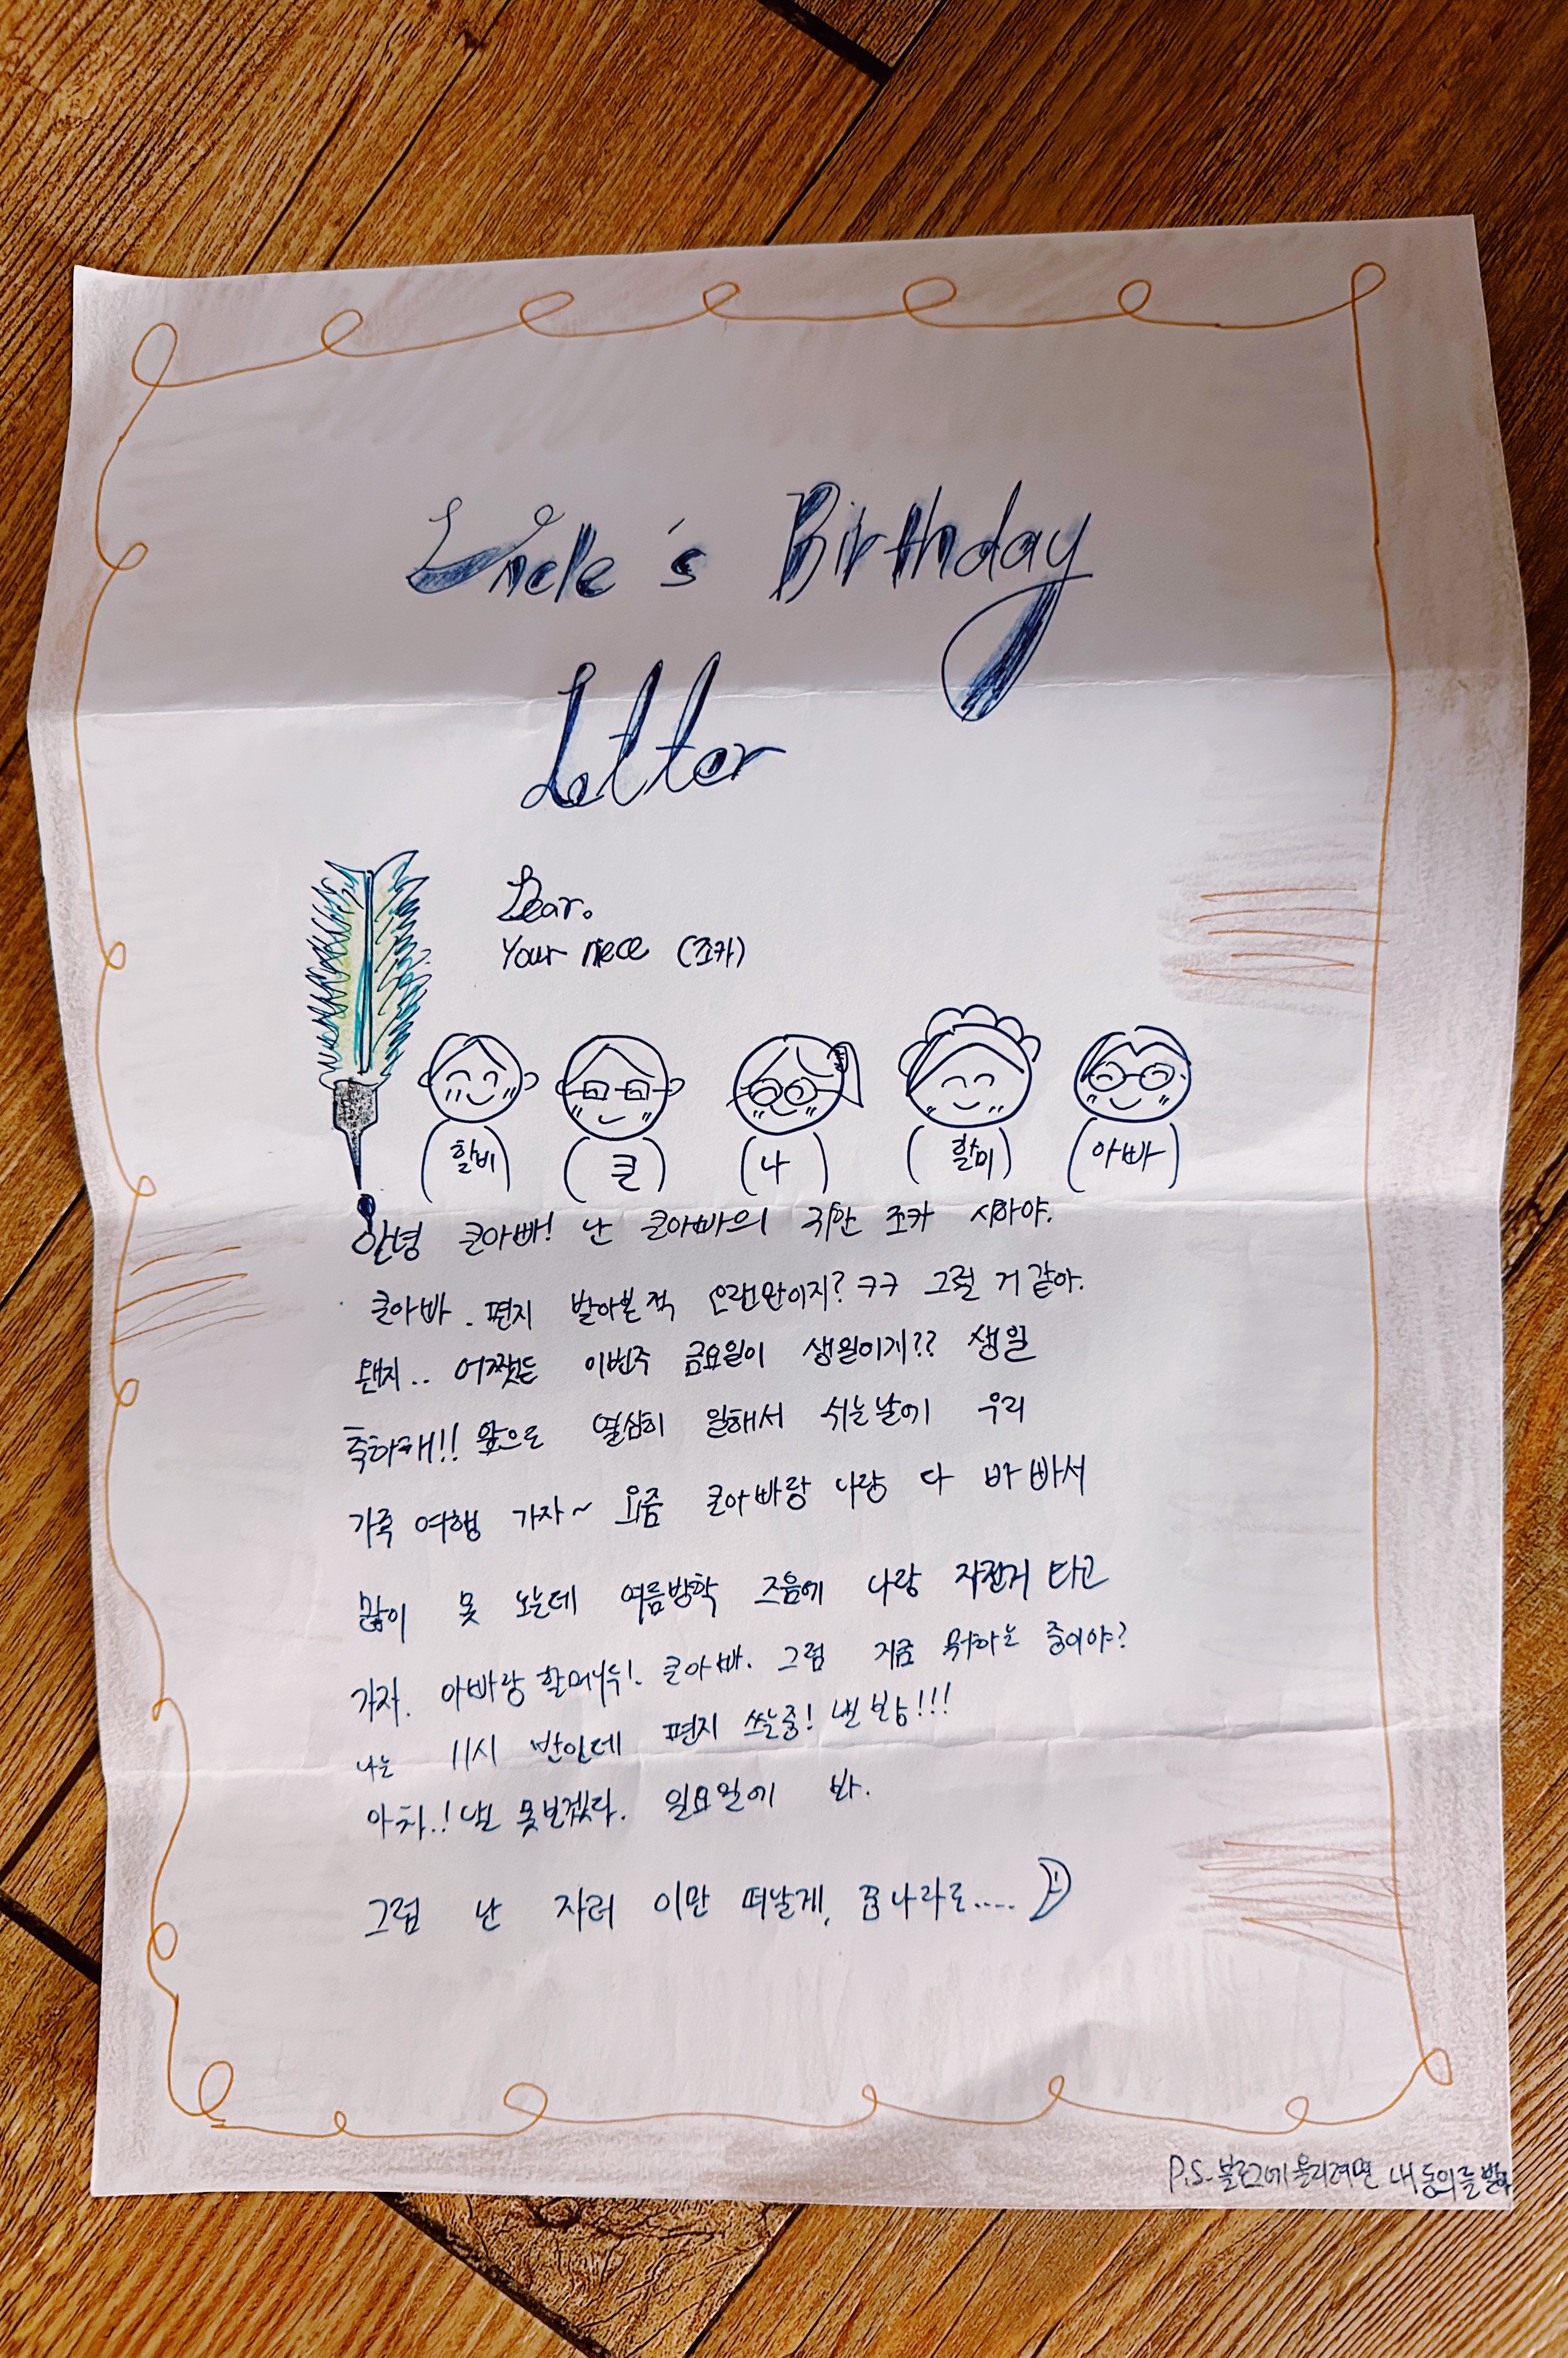 Uncle's Birthday
Letter
Dear.
Your niece (조카)
할비 큰 나 할미 아빠
안녕 큰아빠! 난 큰아빠의 귀한 조카 시하야.
큰아빠. 편지 받아본적 오랜만이지? ㅋㅋ 그럴 거 같아.
왠지.. 어쨌든 이번주 금요일이 생일이게?? 생일
축하해!! 앞으로 열심히 일해서 쉬는날에 우리
가족 여행 가자~ 요즘 큰아빠랑 나랑 다 바빠서
많이 못 노는데 여름방학 즈음에 나랑 자전거 타고
가자. 아빠랑 할머니두!. 큰아빠. 그럼 지금 뭐하는 중이야?
나는 11시 반인데 편지 쓰는중! 낼 봐!!!
아차..! 낼 못보겠다. 일요일에 봐.
그럼 난 자러 이만 떠날게, 꿈나라로.....
P.S. 블로그에 올리려면 내 동의를 받아